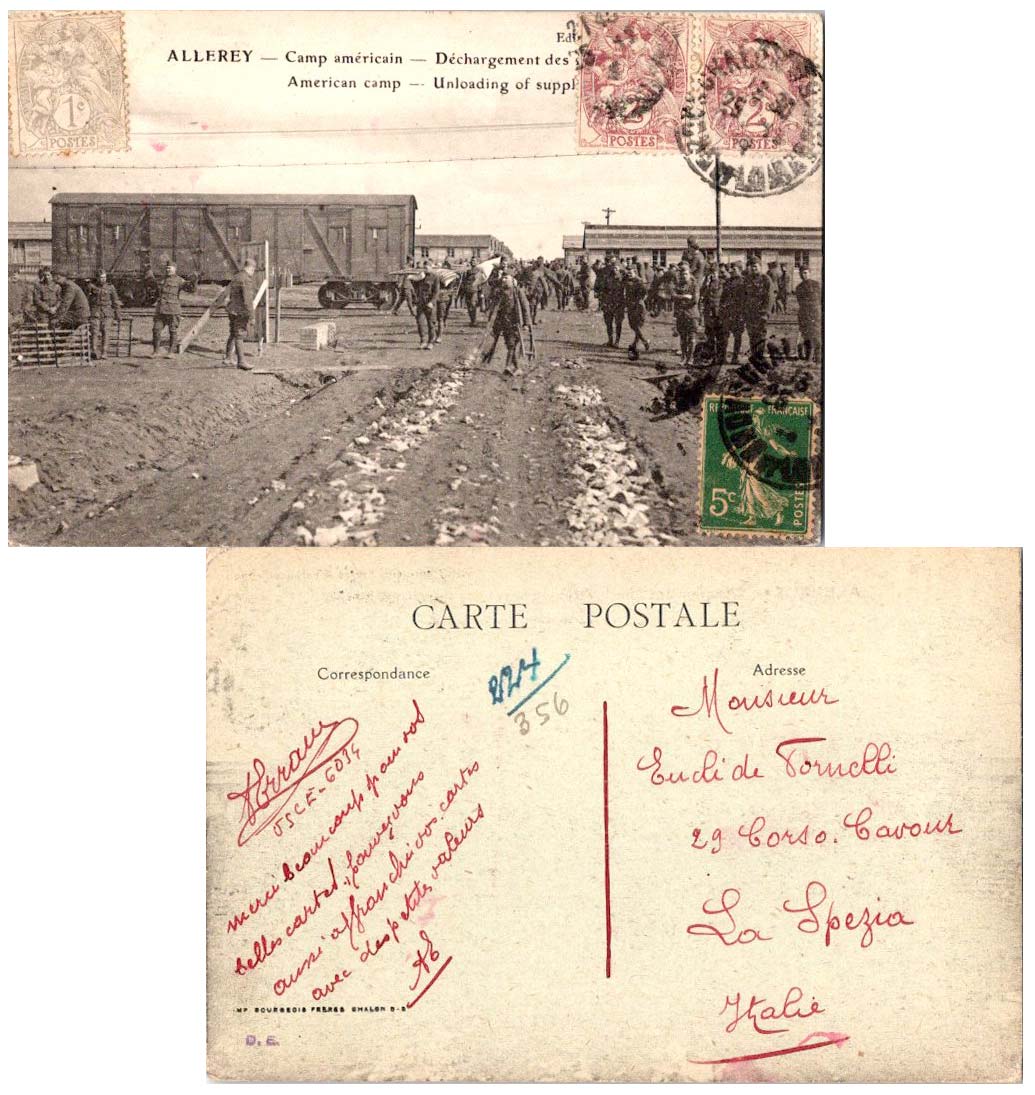 Edi
ALLEREY — Camp américain — Déchargement des
American camp — Unloading of suppl
1c
POSTES
2c
POSTES
2c
POSTES
REPUBLIQUE FRANÇAISE
5c
POSTES
CARTE POSTALE
Correspondance
Adresse
224
356
JSCE-6034
merci beaucoup pour vos
belles cartes, pouvez vous
aussi affranchir vos cartes
avec des petites valeurs
AE
Monsieur
Euclide Tornelli
29 Corso. Cavour
La Spezia
Italie
IMP BOURGEOIS FRÈRES CHALON S-S
D. E.